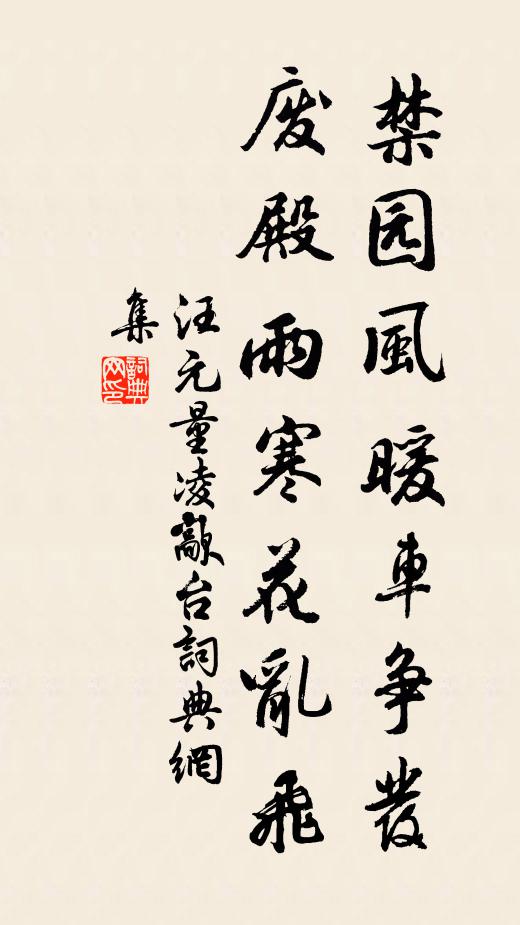 禁园風暖車争發
廢殿雨寒花亂飛
汪元量凌歊台詞典網
集
詞典
网印